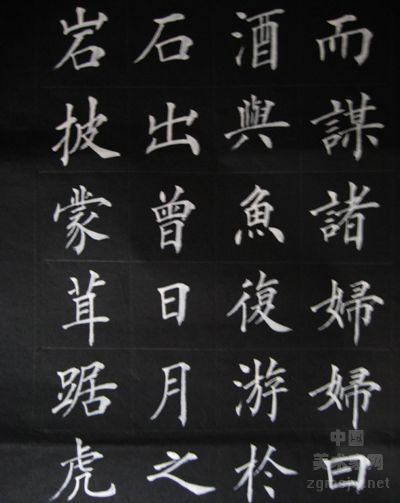 而謀諸婦婦曰
酒與魚復游於
石出曾日月之
岩披蒙茸踞虎
中国
美术家网
zgmsjw.net